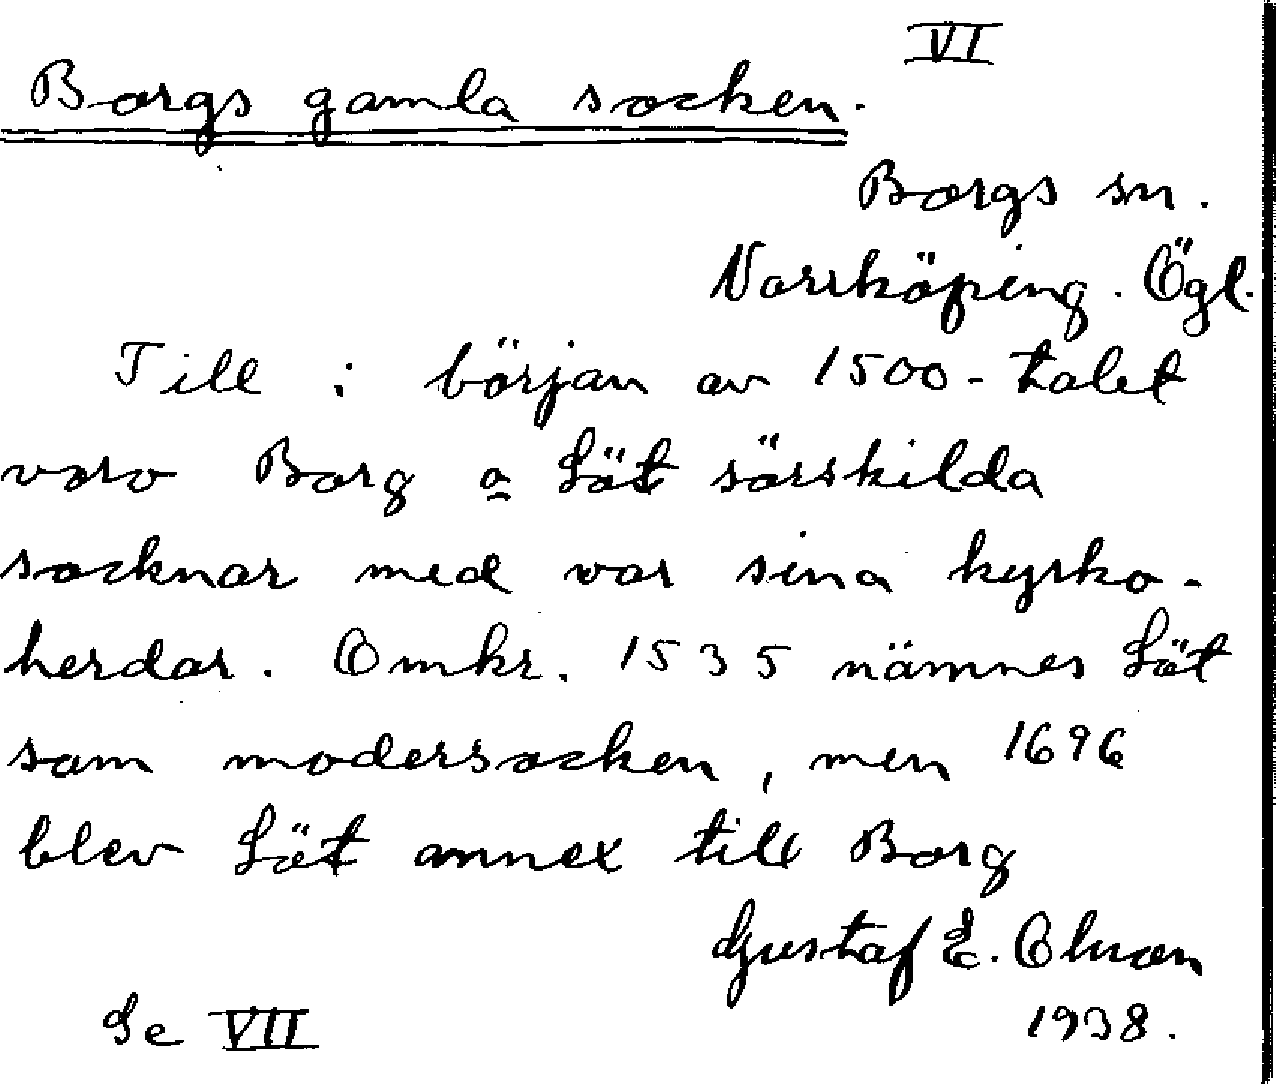 VI
Borgs gamla socken.
Borgs sn.
Norrköping. Ögl.
Till i början av 1500-talet
voro Borg o Löt särskilda
socknar med var sina kyrko-
herdar. Omkr. 1535 nämnes Löt
som modersocken, men 1696
blev Löt annex till Borg
Gustaf E. Olsson
1938.
Se VII